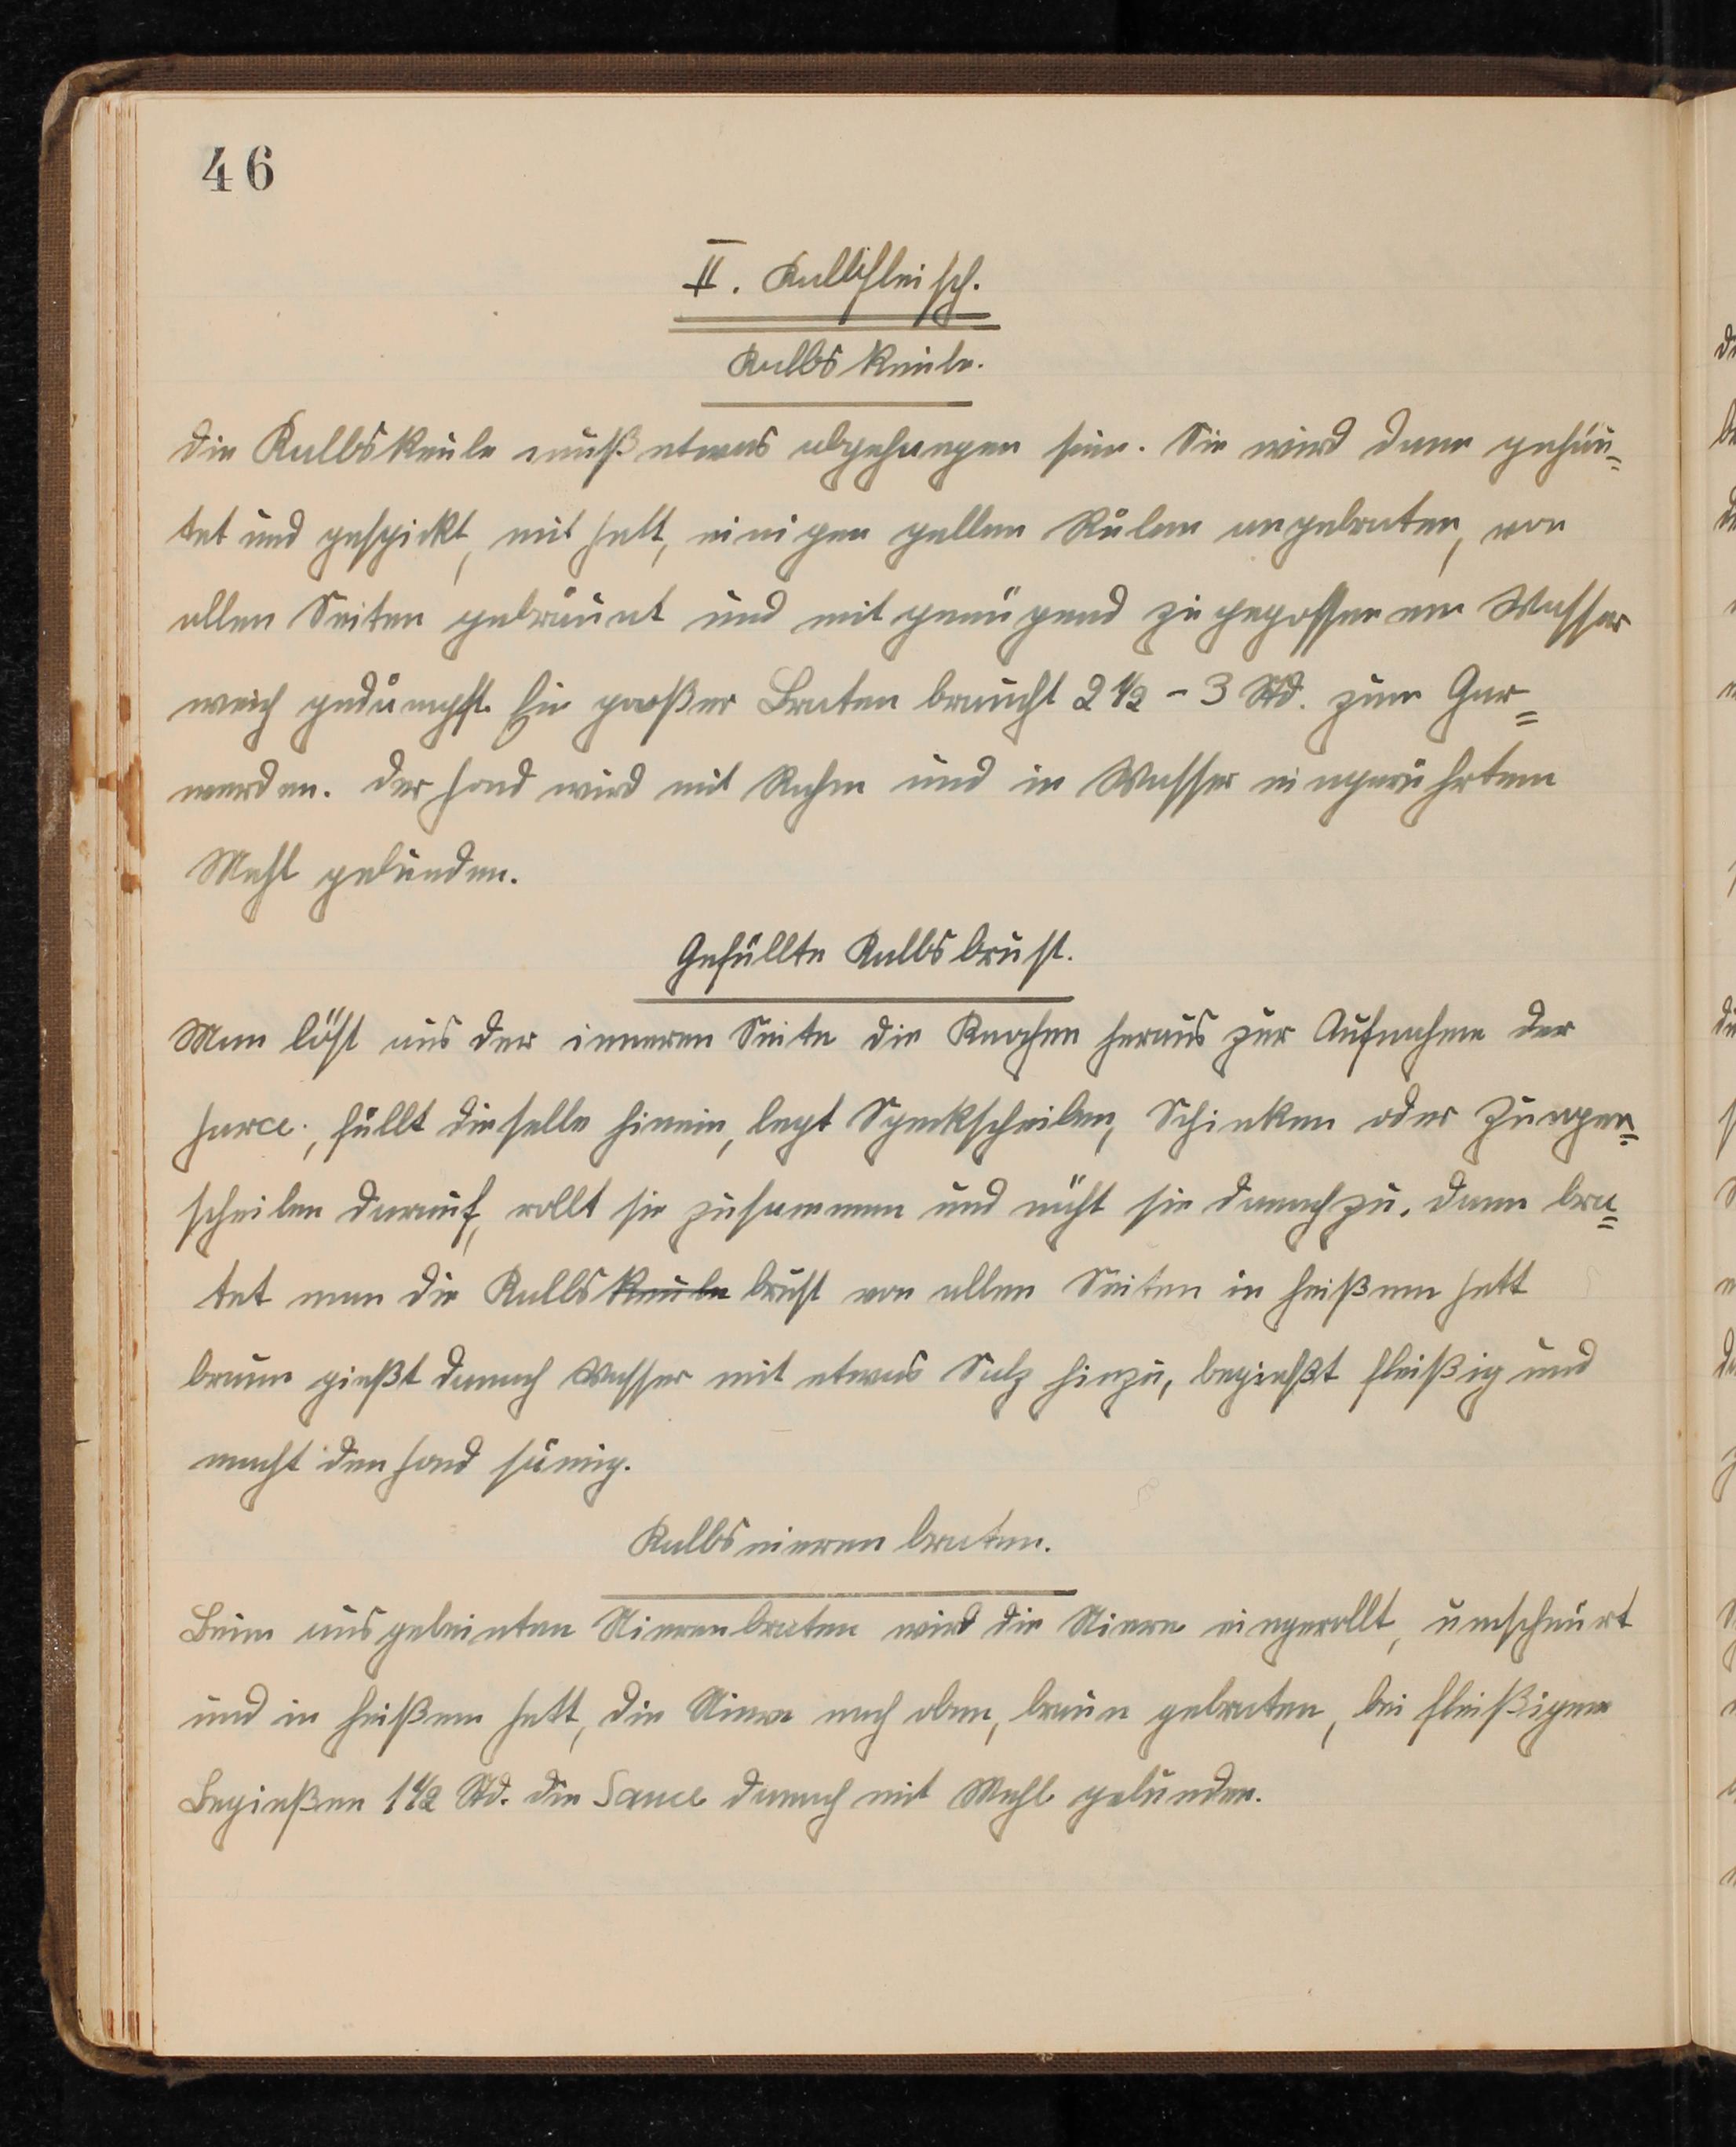 46
II. Kalbfleisch.
Kalbskeule.
Die Kalbskeule muß etwas abgehangen sein. Sie wird dann gehäu=
tet und gespickt, mit Fett, einigen gelben Rüben angebraten, von
allen Seiten gebräunt und mit genügend zugegossenem Wasser
weich gedämpft. Ein großer Braten braucht 2 1/2 - 3 Std. zum Gar=
werden. Der Fond wird mit Rahm und in Wasser eingerührtem
Mehl gebunden.
Gefüllte Kalbsbrust.
Man löst aus der inneren Seite die Knochen heraus zur Aufnahme der
Farce, füllt dieselbe hinein, legt Speckscheiben, Schinken oder Zungen=
scheiben darauf, rollt sie zusammen und näht sie danach zu. Dann bra=
tet man die Kalbskeule brust von allen Seiten in heißem Fett
braun gießt danach Wasser mit etwas Salz hinzu, begießt fleißig und
macht den Fond sämig.
Kalbsnierenbraten.
Beim ausgebeinten Nierenbraten wird die Niere eingerollt, umschnürt
und in heißem Fett, die Niere nach oben, braun gebraten, bei fleißigem
Begießen 1 1/2 Std. die Sauce danach mit Mehl gebunden.